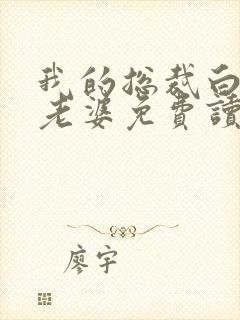 我的总裁白
老婆免費讀
廖宇